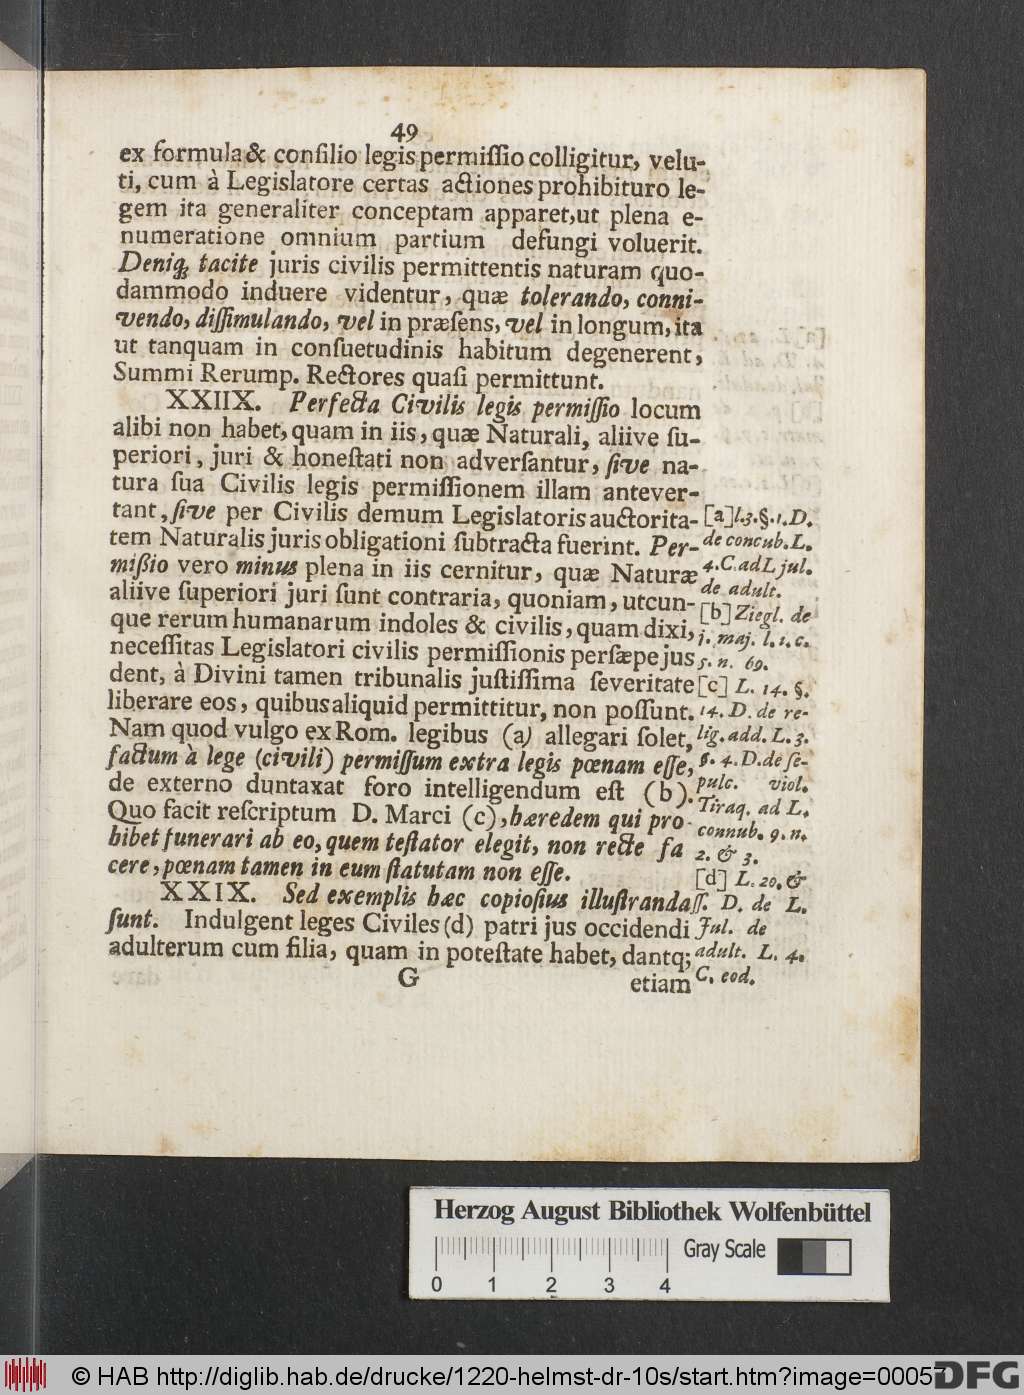 49
ex formula & conſilio legis permiſſio colligitur, velu-
ti, cum à Legislatore certas actiones prohibituro le-
gem ita generaliter conceptam apparet, ut plena e-
numeratione omnium partium defungi voluerit.
Deniq; tacite juris civilis permittentis naturam quo-
dammodo induere videntur, quæ tolerando, conni-
vendo, diſſimulando, vel in præſens, vel in longum, ita
ut tanquam in conſuetudinis habitum degenerent,
Summi Rerump. Rectores quaſi permittunt.
XXIIX. Perfecta Civilis legis permiſſio locum
alibi non habet, quam in iis, quæ Naturali, aliive ſu-
periori, juri & honeſtati non adverſantur, ſive na-
tura ſua Civilis legis permiſſionem illam antever-
tant, ſive per Civilis demum Legislatoris auctorita-
tem Naturalis juris obligationi ſubtracta fuerint. Per-
mißio vero minus plena in iis cernitur, quæ Naturæ
aliive ſuperiori juri ſunt contraria, quoniam, utcun-
que rerum humanarum indoles & civilis, quam dixi,
neceſſitas Legislatori civilis permiſſionis perſæpe jus
dent, à Divini tamen tribunalis juſtiſſima ſeveritate
liberare eos, quibus aliquid permittitur, non poſſunt.
Nam quod vulgo ex Rom. legibus (a) allegari ſolet,
factum à lege (civili) permiſſum extra legis pœnam eſſe,
de externo duntaxat foro intelligendum eſt (b).
Quo facit reſcriptum D. Marci (c), hæredem qui pro-
hibet funerari ab eo, quem teſtator elegit, non recte fa
cere, pœnam tamen in eum ſtatutam non eſſe.
XXIX. Sed exemplis hæc copioſius illuſtranda
ſunt. Indulgent leges Civiles (d) patri jus occidendi
adulterum cum filia, quam in poteſtate habet, dantq;
G
etiam
[a] l. 3. §. 1. D.
de concub. L.
4. C. ad L jul.
de adult.
[b] Ziegl. de
j. maj. l. 1. c.
5. n. 69.
[c] L. 14. §.
14. D. de re-
lig. add. L. 3.
§. 4. D. de ſe-
pulc. viol.
Tiraq. ad L.
connub. 9. n.
2. & 3.
[d] L. 20. &
ſſ. D. de L.
Jul. de
adult. L. 4.
C. eod.
Herzog August Bibliothek Wolfenbüttel
Gray Scale
0 1 2 3 4
© HAB http://diglib.hab.de/drucke/1220-helmst-dr-10s/start.htm?image=00057
DFG